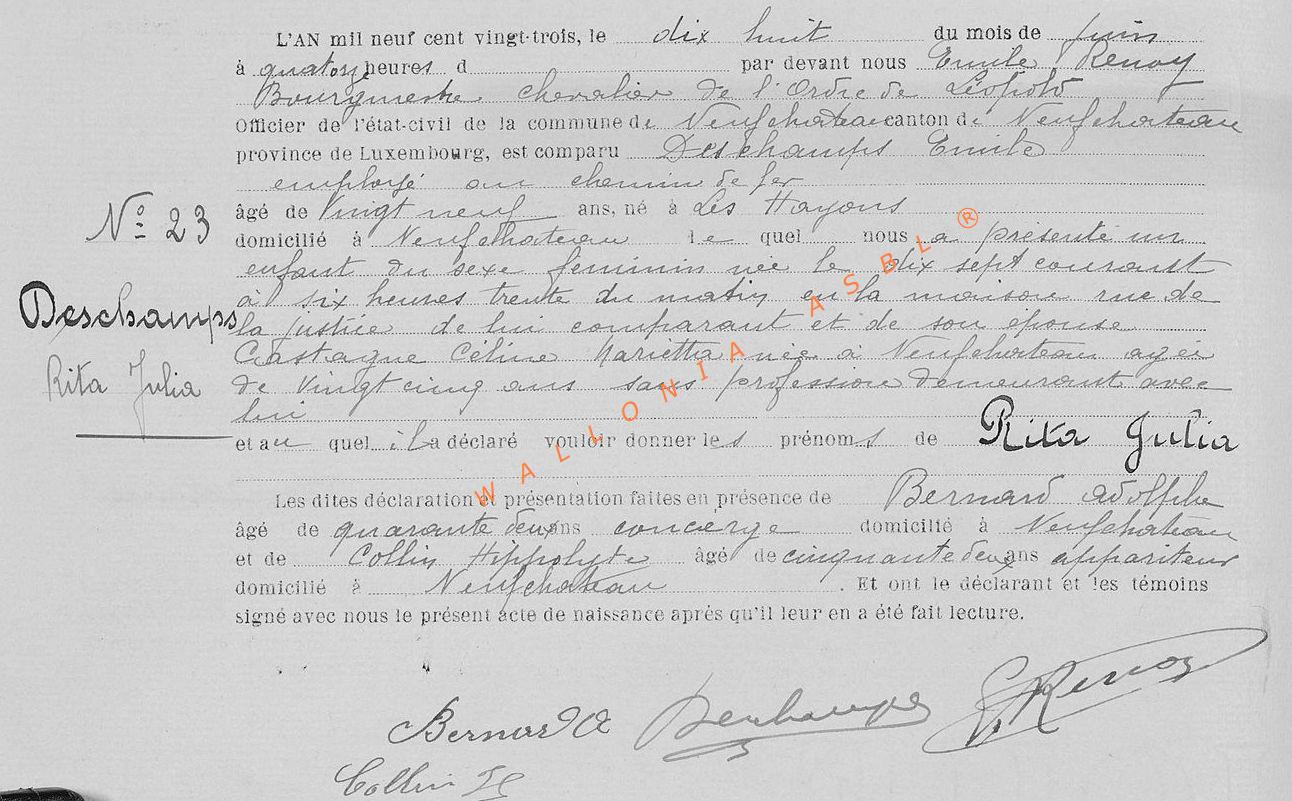 L'AN mil neuf cent vingt-trois, le dix huit du mois de juin
à quatorze heures d par devant nous Emile Renoy
Bourgmestre chevalier de l'Ordre de Léopold
Officier de l'état-civil de la commune de Neufchateau canton de Neufchateau
province de Luxembourg, est comparu Deschamps Emile
employé au chemin de fer
âgé de Vingt neuf ans, né à Les Hayons
domicilié à Neufchateau le quel nous a présenté un
enfant du sexe feminin née le dix sept courant
à six heures trente du matin en la maison rue de
la justice de lui comparant et de son épouse
Castagne Céline Marietta née à Neufchateau agée
de Vingt cinq ans sans profession demeurant avec
lui
et au quel il a déclaré vouloir donner les prénoms de Rita Julia
Les dites déclaration et présentation faites en présence de Bernard Adolphe
âgé de quarante deux ans concierge domicilié à Neufchateau
et de Collin Hippolyte âgé de cinquante deux ans appariteur
domicilié à Neufchateau. Et ont le déclarant et les témoins
signé avec nous le présent acte de naissance après qu'il leur en a été fait lecture.
No 23
Deschamps
Rita Julia
WALLONIA ASBL ®
Bernard A Deschamps E Renoy
Collin H